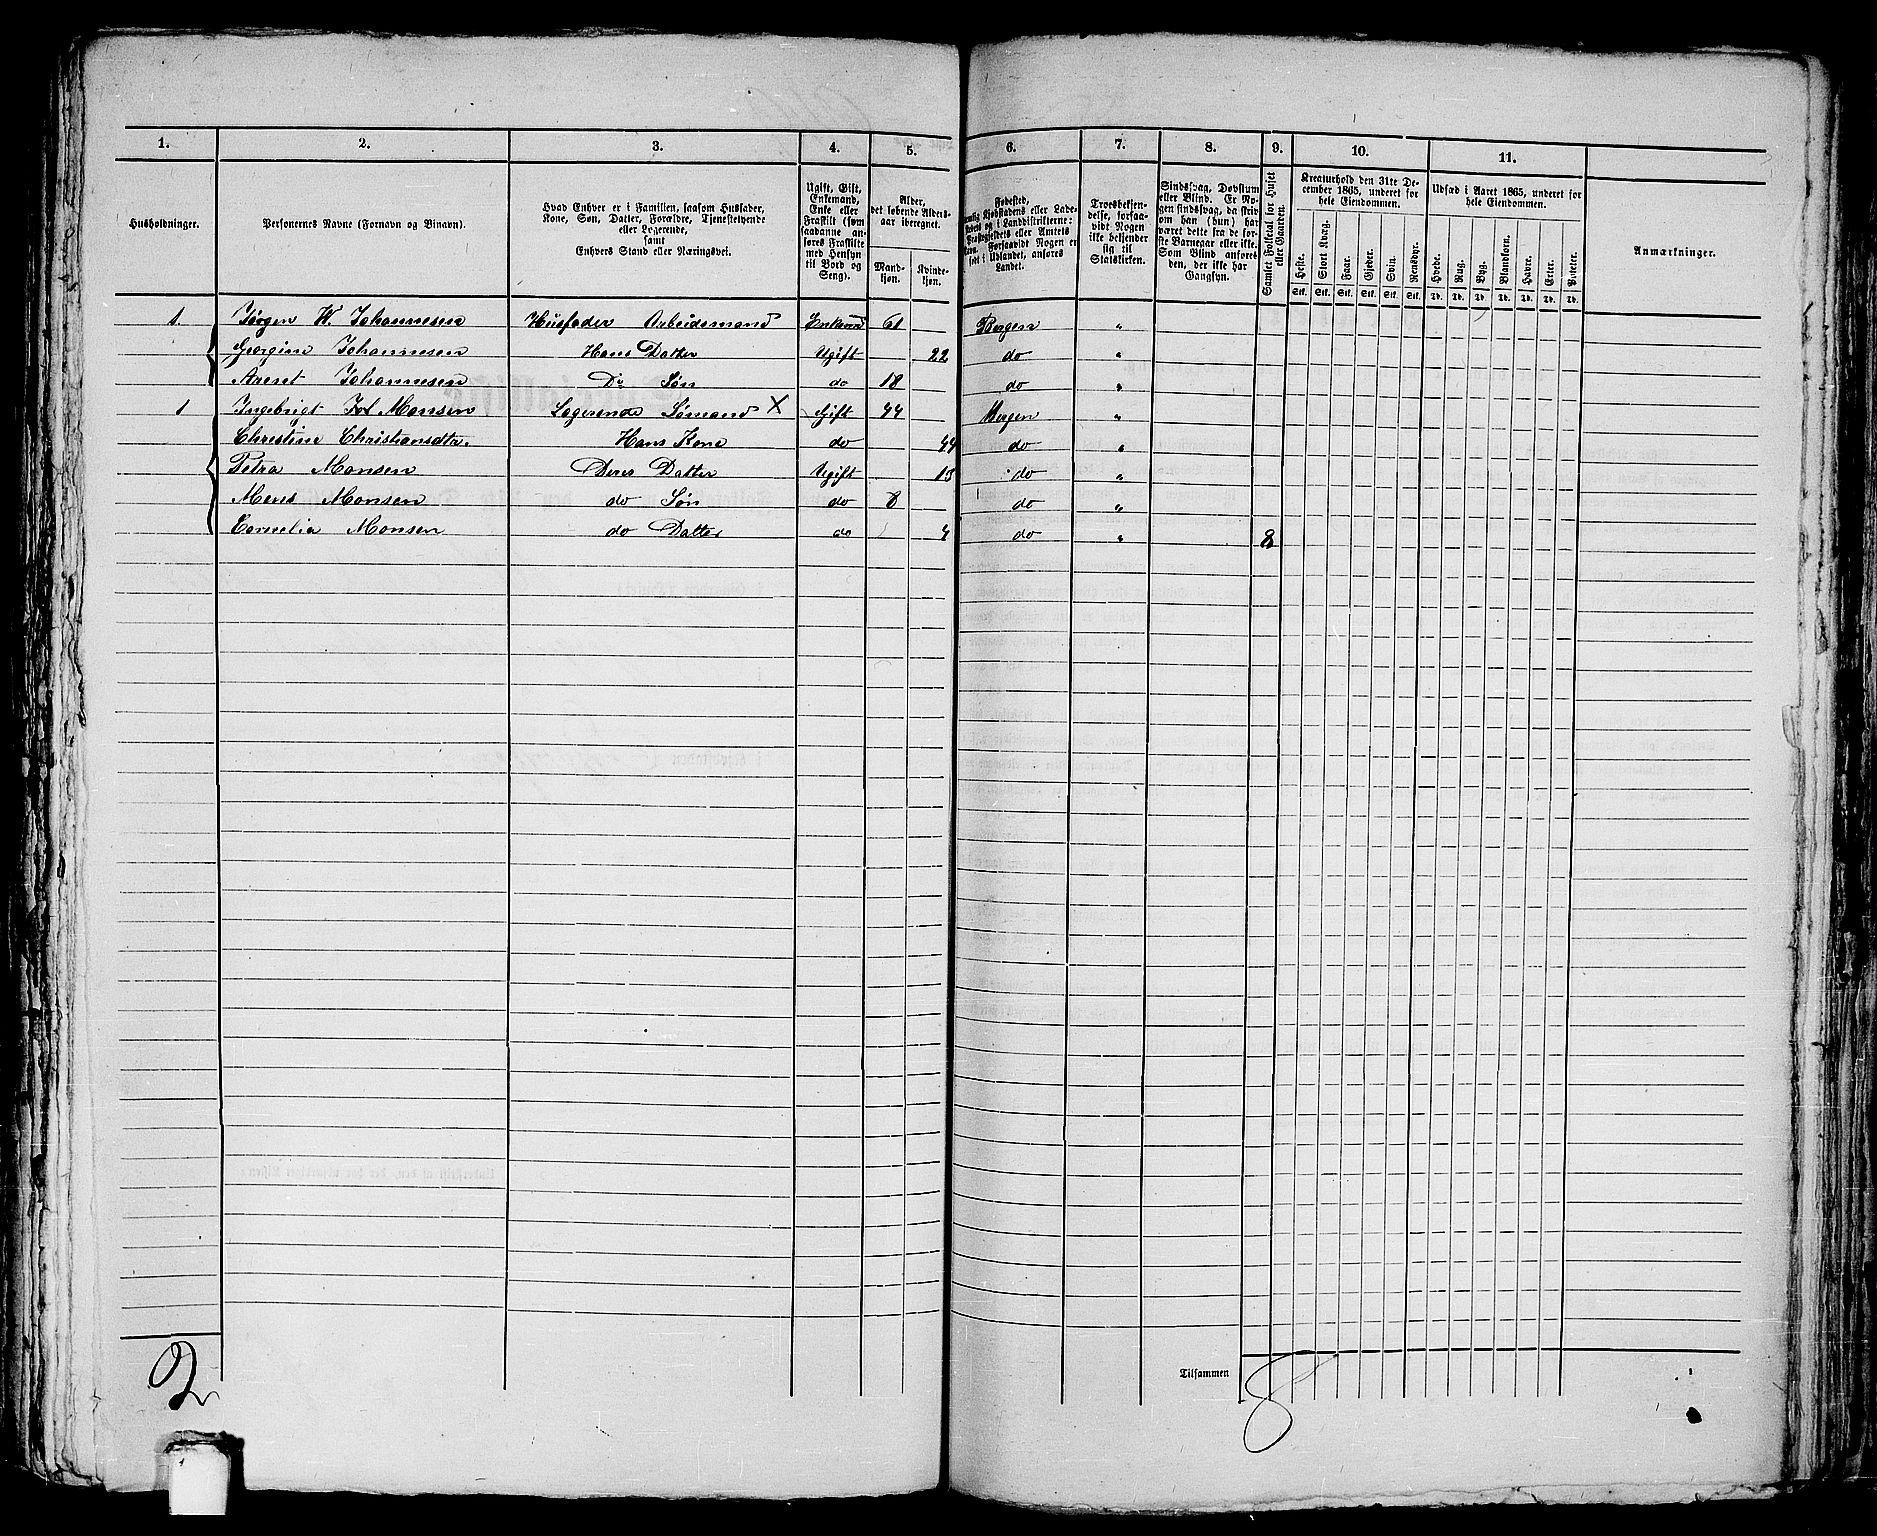 1. 2. 3. 4. 5. 6. 7. 8. 9. 10. 11.
Husholdninger.
Personernes Navne (Fornavn og Binavn).
Hvad Enhver er i Familien, saasom Husfader,
Kone, Søn, Datter, Forældre, Tjenestetyende
eller Logerende,
samt
Enhvers Stand eller Næringsvei.
Ugift, Gift,
Enkemand,
Enke eller
Fraskilt (som
saadanne an-
føres Fraskilte
med Hensyn
til Bord og
Seng).
Alder,
det løbende Alders-
aar iberegnet.
Mand-
kjøn.
Kvinde-
kjøn.
Fødested,
nemlig Kjøbstadens eller Lade-
og i Landdistrikterne:
Præstegjeldets eller Amtets
Navn. Forsaavidt Nogen er
født i Udlandet, anføres
Landet.
Troesbekjen-
delse, forsaa-
vidt Nogen
ikke bekjender
sig til
Statskirken.
Sindssvag, Døvstum
eller Blind. Er No-
gen sindssvag, da skriv
om han (hun) har
været dette fra de før-
ste Barneaar eller ikke.
Som Blind anføres
den, der ikke har
Gangsyn.
Samlet Folketal for Huset
eller Gaarden.
Kreaturhold den 31te De-
cember 1865, underet for
hele Eiendommen.
Heste. Stort Kvæg. Faar. Gjeder. Svin. Rensdyr.
Stk. Stk. Stk. Stk. Stk. Stk.
Udsæd i Aaret 1865, underet for
hele Eiendommen.
Hvede. Rug. Byg. Blandkorn. Havre. Erter. Poteter.
Td. Td. Td. Td. Td. Td. Td.
Anmærkninger.
1. Jørgen W. Johannesen Husfader Arbeidsmand Enkemd 61 Bergen "
Georgine Johannesen Hans Datter Ugift 22 do "
Arent Johannesen Do Søn do 18 do "
1 Ingebrigt Jol Monsen Logerende Sømand X Gift 44 Bergen "
Christine Christiansdtr. Hans Kone do 44 do "
Petra Monsen Deres Datter Ugift 15 do "
Mons Monsen do Søn do 8 do "
Cornelia Monsen do Datter do 4 do " 8
Tilsammen
2 8